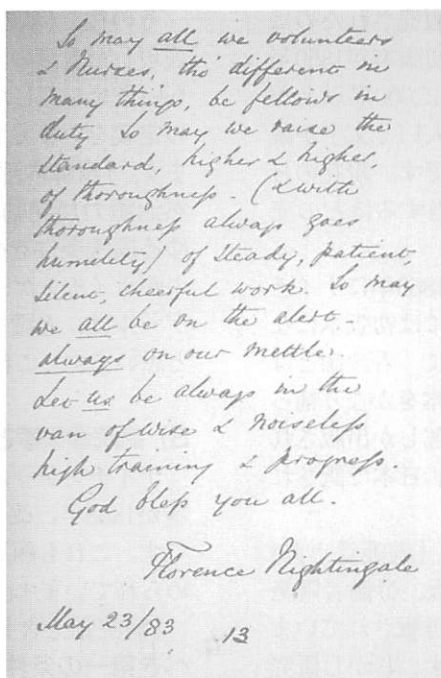 So may all we volunteers
& Nurses, tho' different in
many things, be fellows in
duty So may we raise the
standard, higher & higher,
of thoroughness. (& with
thoroughness always goes
humility) of steady, patient,
silent, cheerful work. So may
we all be on the alert -
always on our mettle.
Let us be always in the
van of wise & noiseless
high training & progress.
God bless you all.
Florence Nightingale
May 23/83 13